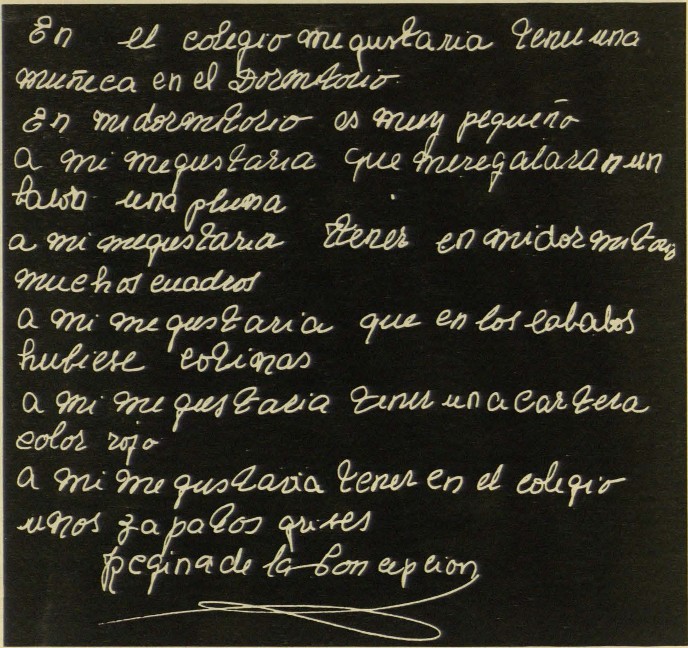 En el colegio me gustaria tener una
muñeca en el Dormitorio.
En midormitorio es muy pequeño
a mi megustaria que meregalaran un
una pluma
a mi megustaria tener en midormitorio
muchos cuadros
a mi me gustaria que en los labalos
hubiese cotinas
a mi me gustaria tener una cartera
color rojo
a mi me gustaria tener en el colegio
unos zapatos grises
Reginade la Concepcion